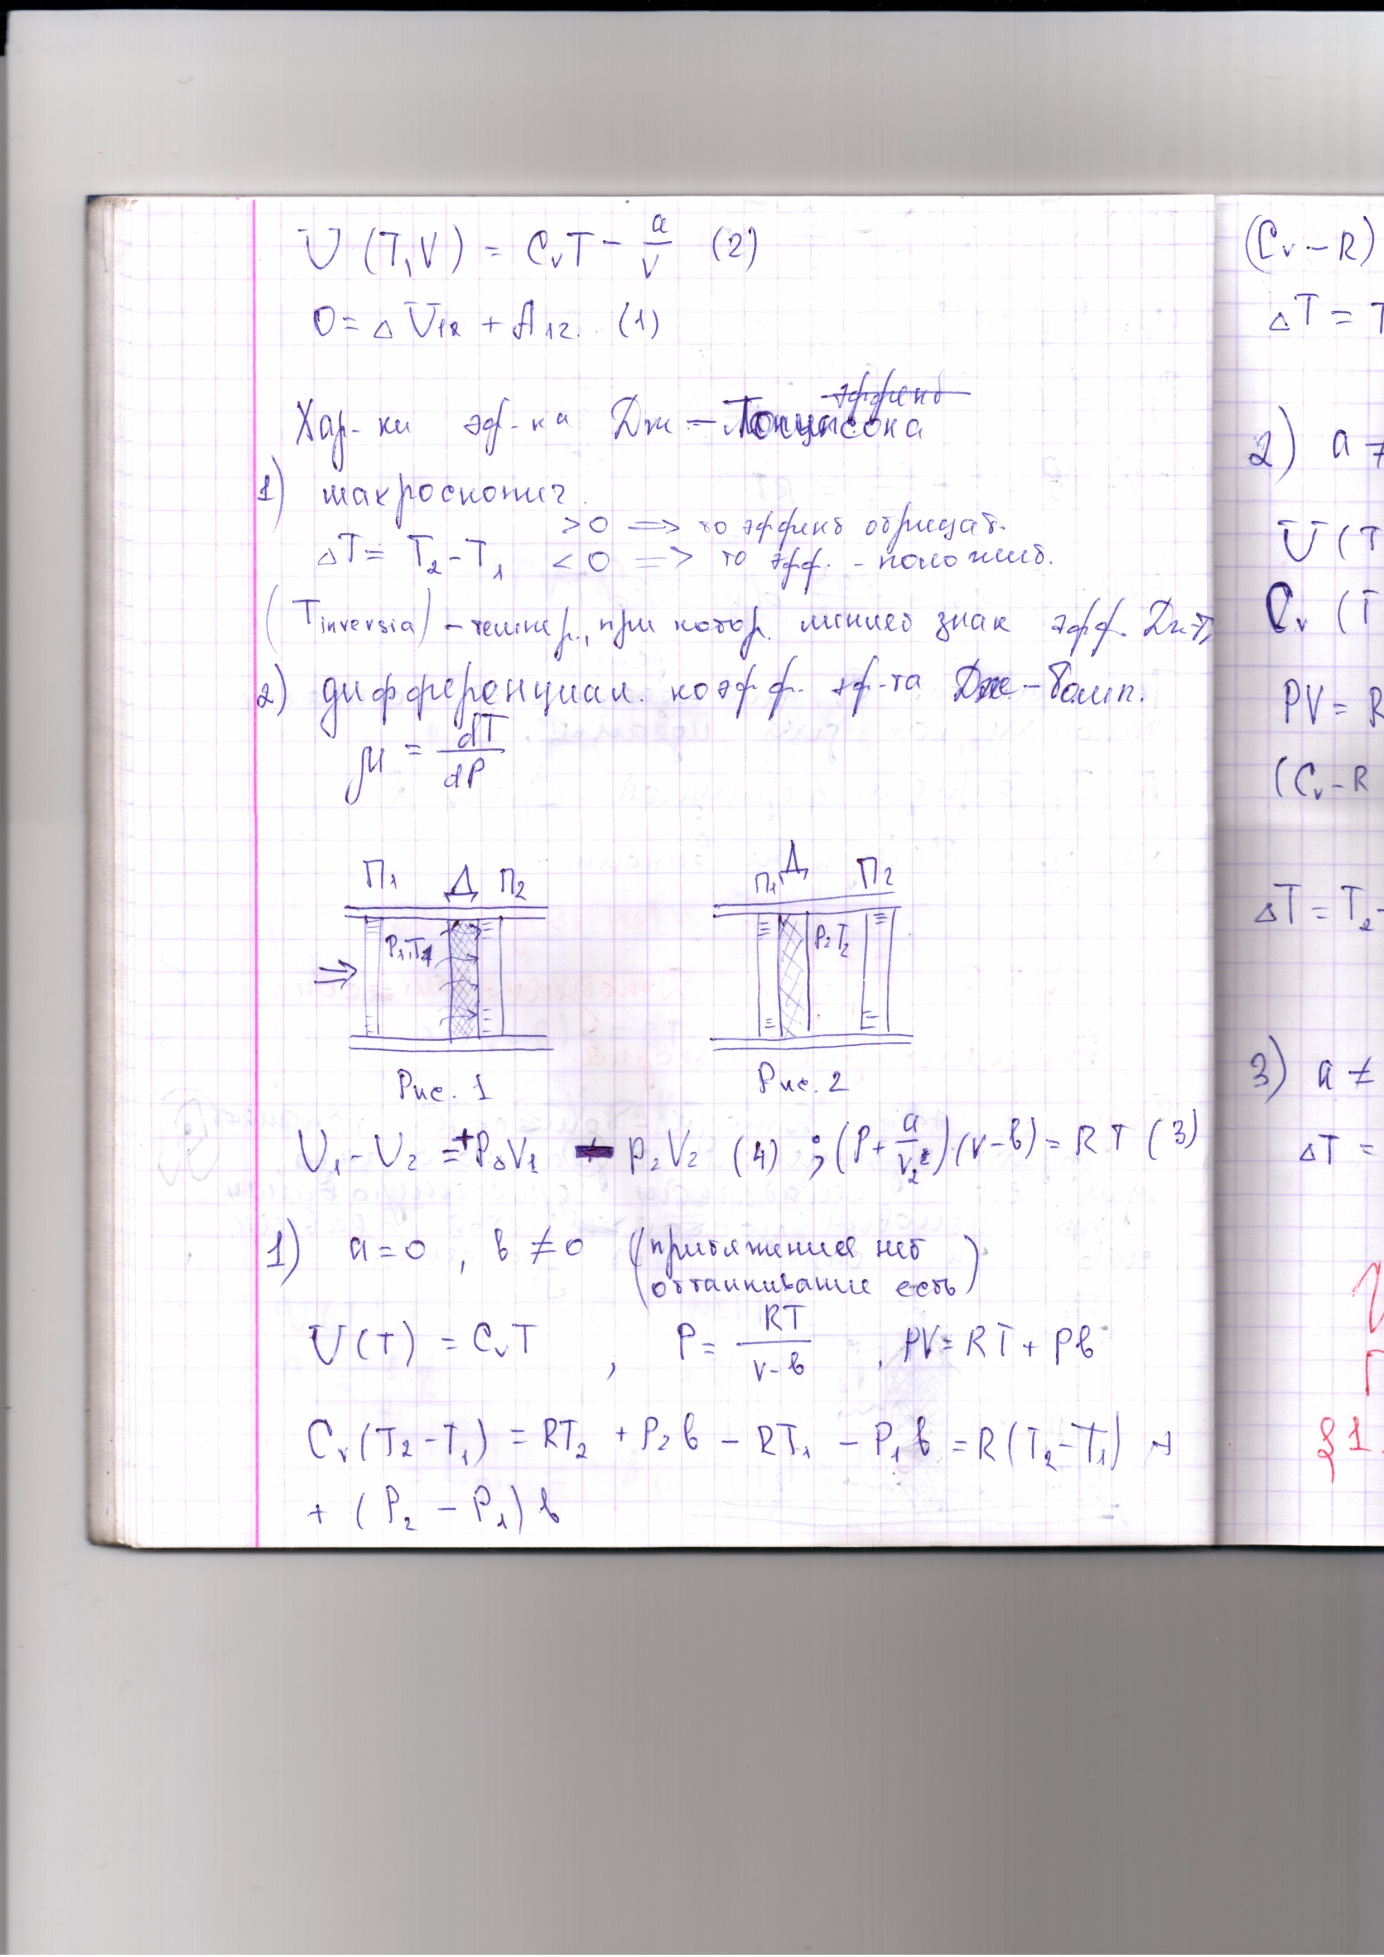 U (T, V) = CvT - a/v (2)
0 = Δ U12 + A12. (1)
эффект
Хар-ки эф-ка Дж - Томпсона
1) макроскопич.
ΔT = T2 - T1 >0 => то эффект отрицат.
<0 => то эфф. - положит.
(Tinversia) - темпер., при котор. меняет знак эфф. Дж-Т,
2) дифференциал. коэфф. эф-та Дж-Томп.
μ = dT/dP
П1 Д П2
P1, T1
Рис. 1
П1 Д П2
P2 T2
Рис. 2
(4) ; (P + a/v²) (v - в) = RT (3)
1) a = 0, в ≠ 0 (притяжения нет
отталкивание есть)
U(T) = CvT, P = RT/v-в, PV = RT + Pв
Cv (T2 - T1) = RT2 + P2 в - RT1 - P1 в = R (T2 - T1) +
+ (P2 - P1) в
(Cv - R)
ΔT = T
2) a ≠
U (T
Cv (T
PV = R
(Cv - R
ΔT = T2 -
3) a ≠
ΔT =
§1.